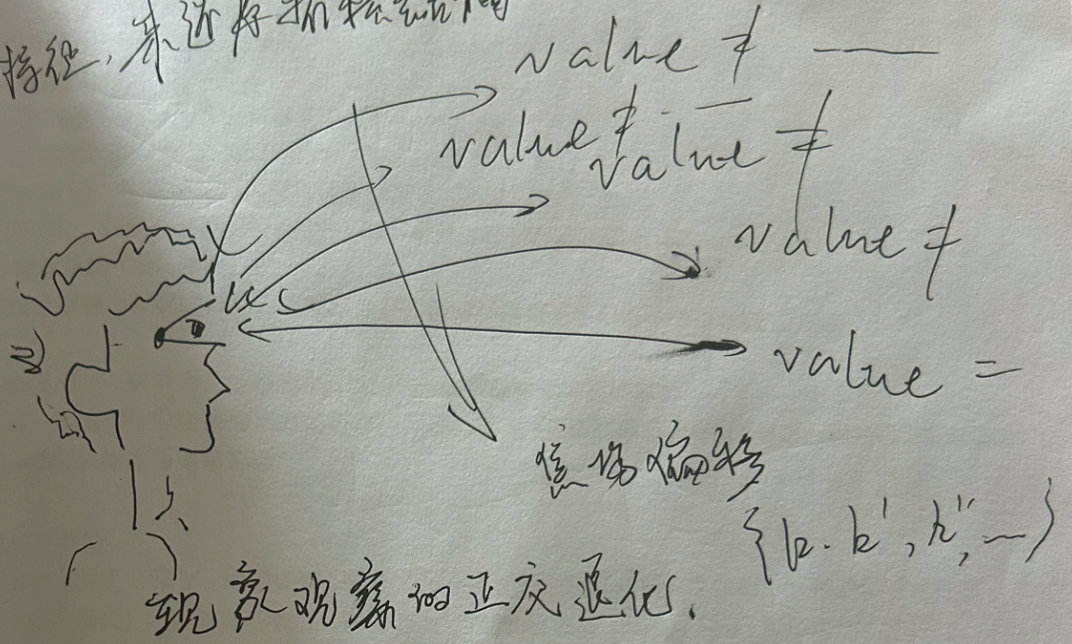 特征，来近好抓
value ≠ ——
value ≠ —
value ≠
value ≠
value =
焦场偏移
{b. b', b'', ...}
现象观察的正交退化.